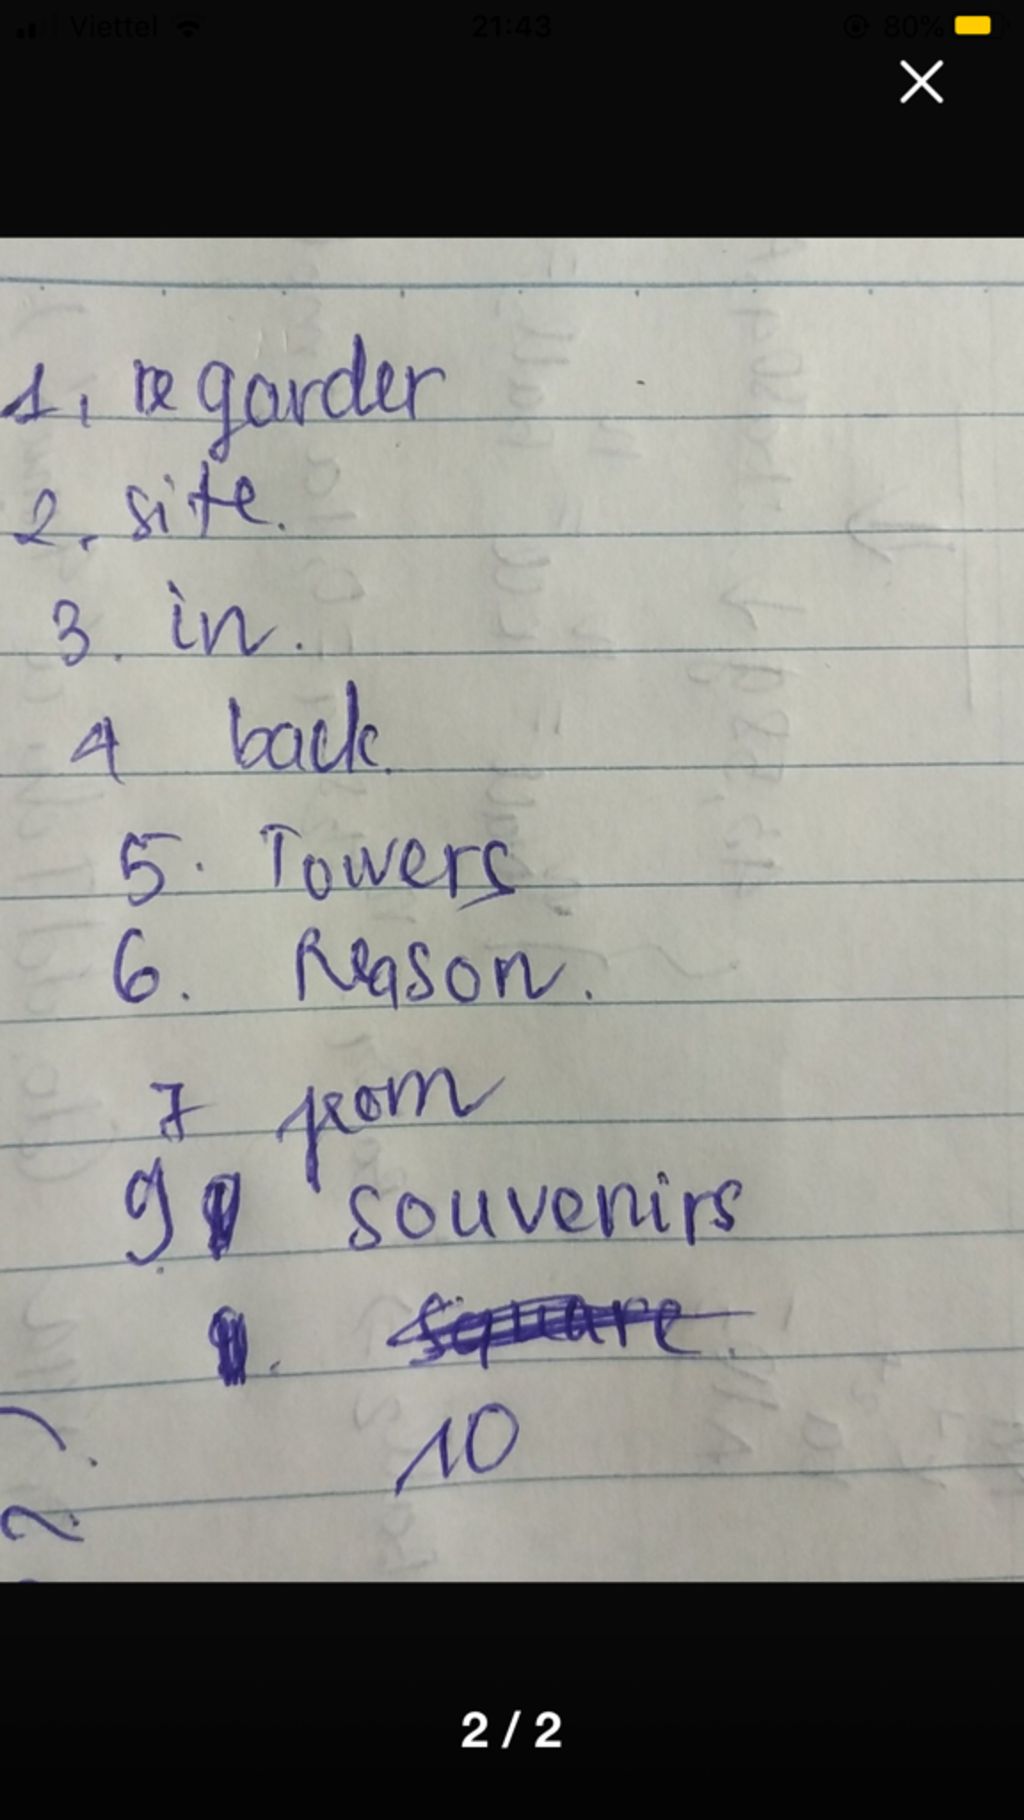 Viettel 21:43 80%
1, regarder
2. site.
3. in.
4 back.
5. Towers
6. Reason.
7 from
9 souvenirs
square.
10
2 / 2